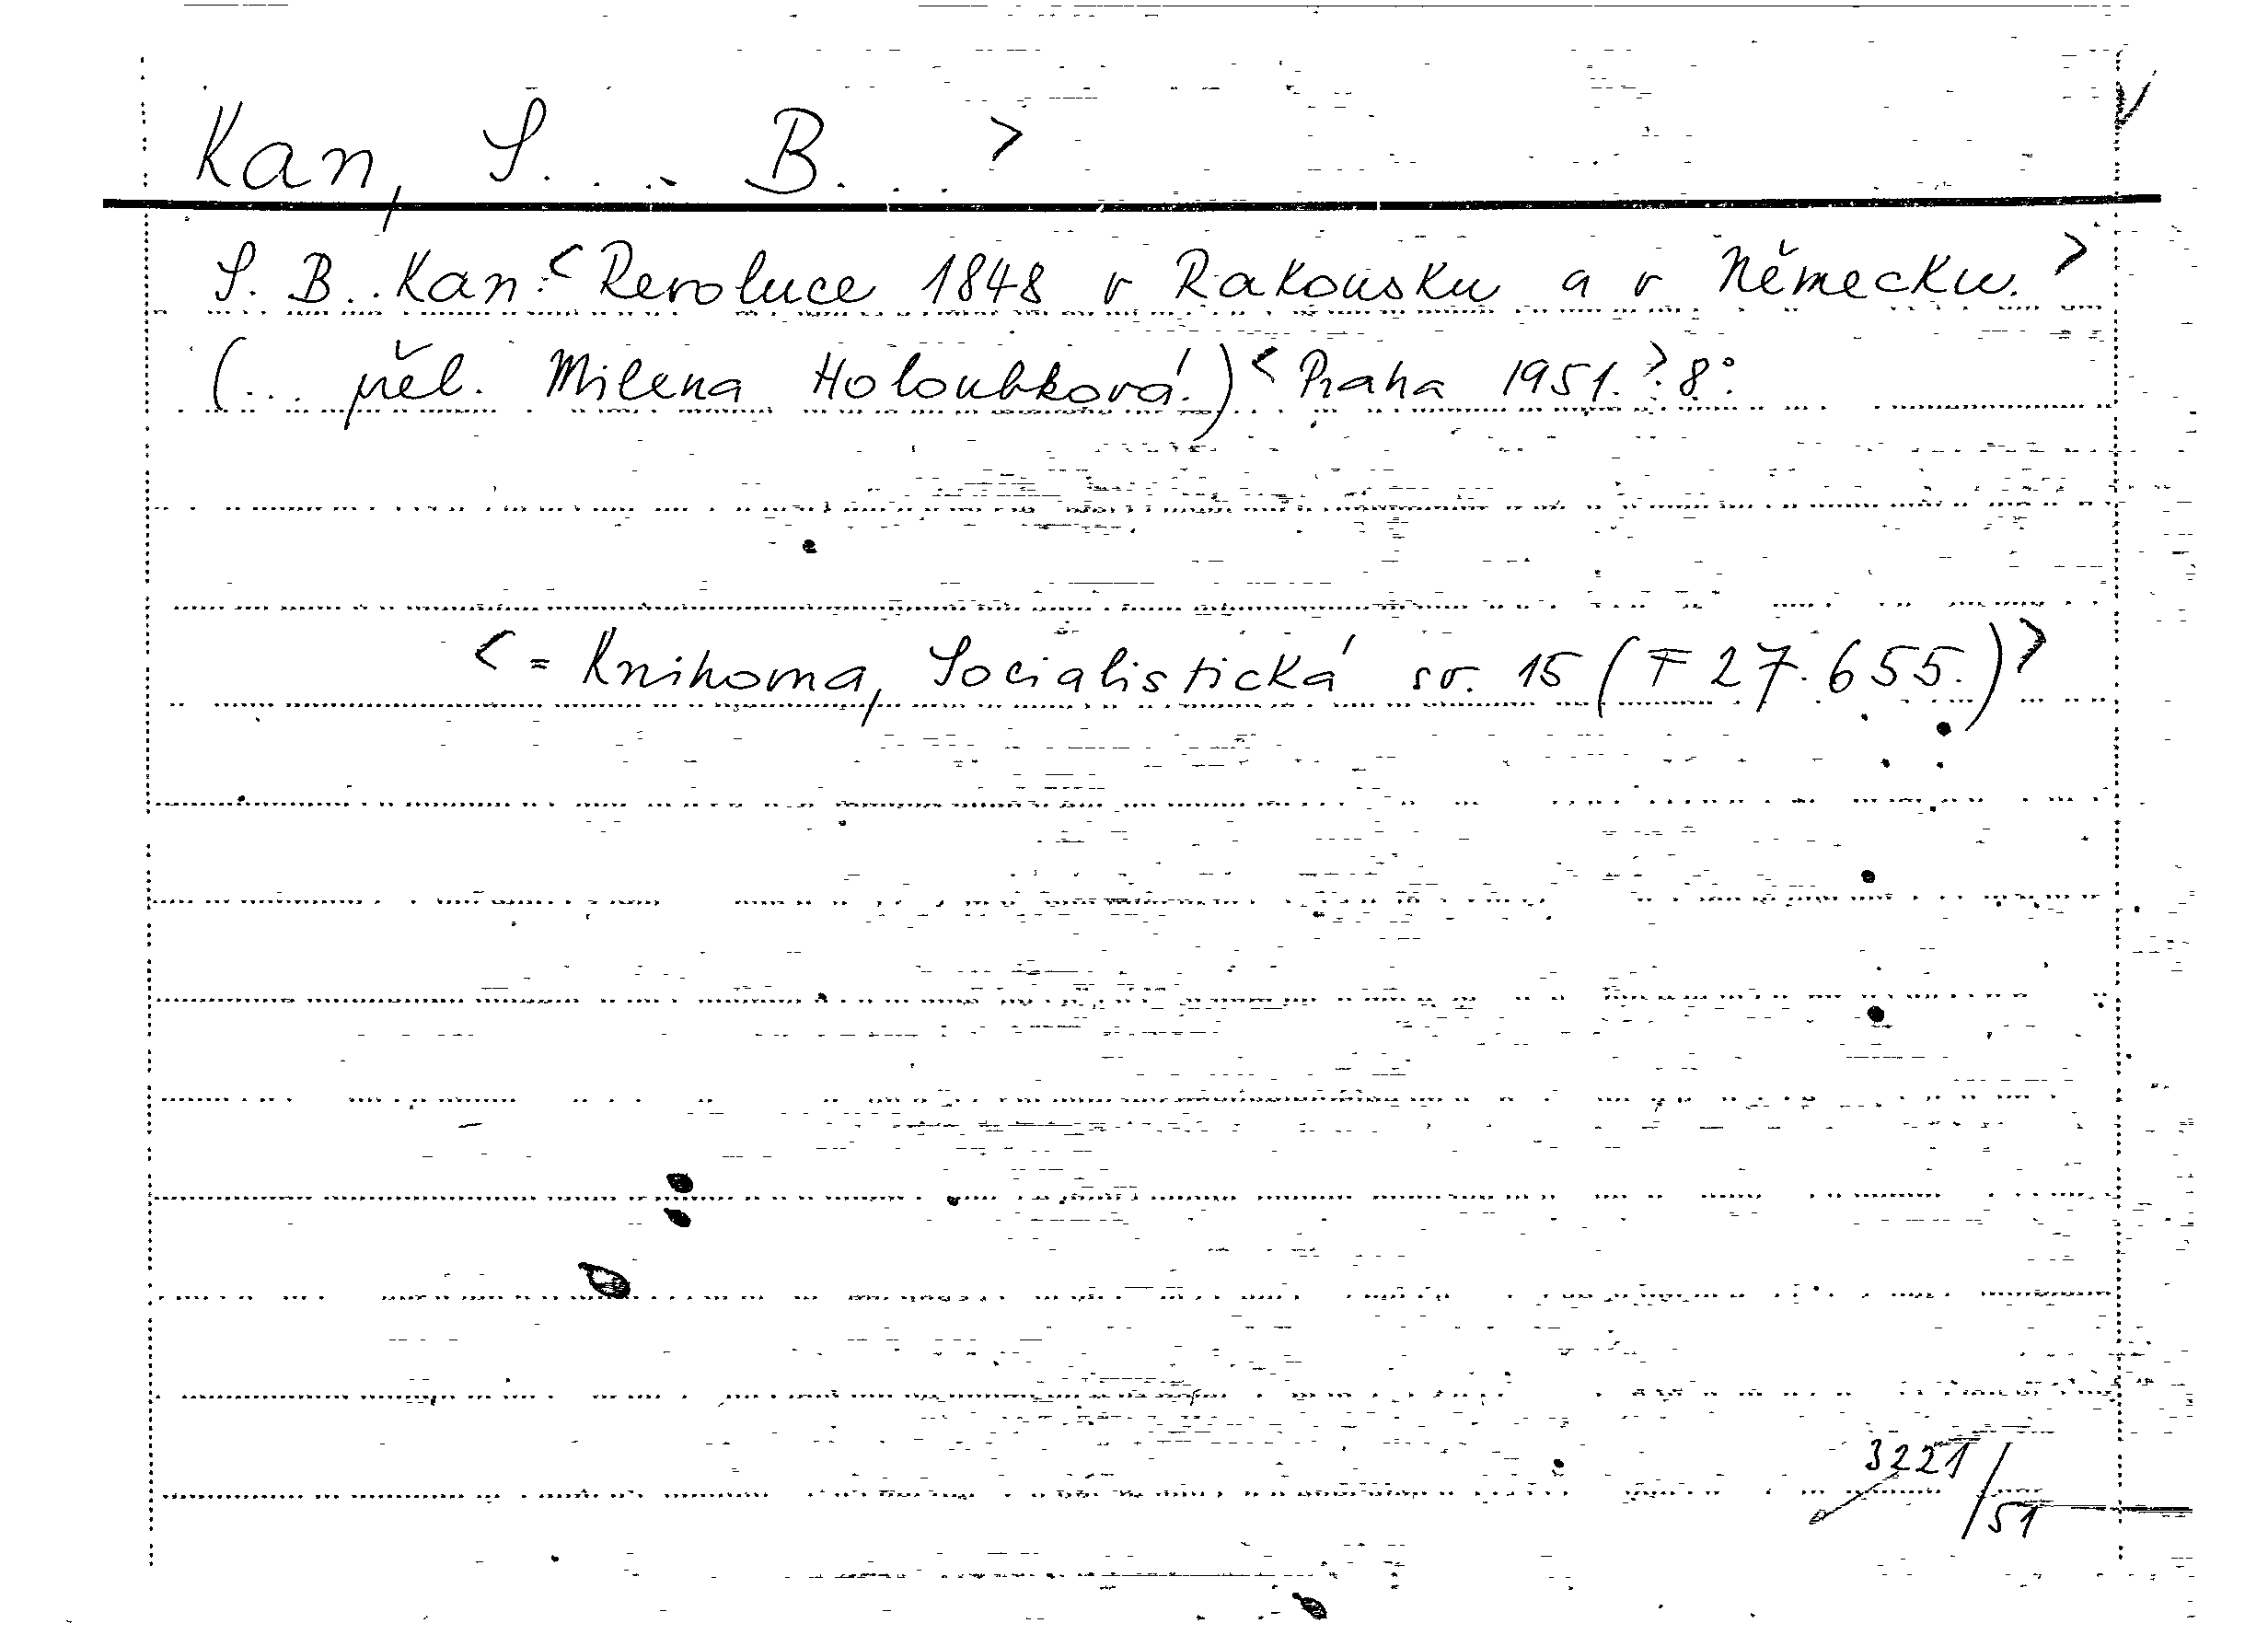 Kan, S. . . . B. . . >
S. B. . Kan: < Revoluce 1848 v Rakousku a v Německu. >
(... přel. Milena Holoubková.) < Praha 1951. > 8°.
< = Knihovna, Socialistická sv. 15 (F 27.655.) >
3221/51